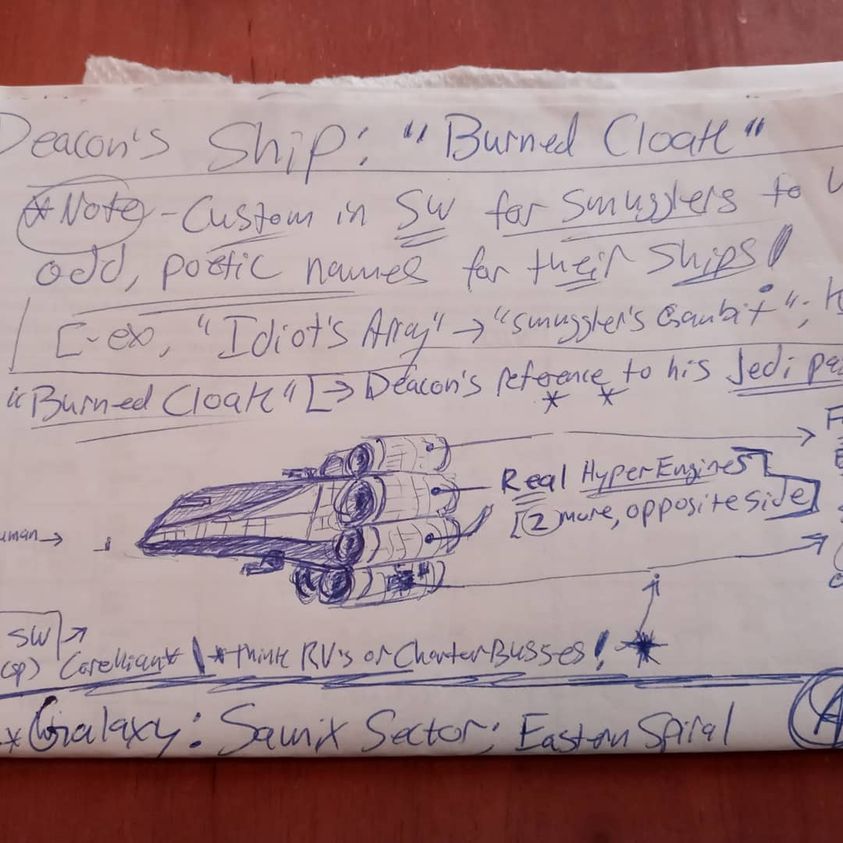 Deacon's Ship: "Burned Cloak"
*Note - Custom in SW for smugglers to
odd, poetic names for their ships!
[-ex, "Idiot's Array" → "Smuggler's Gambit";
"Burned Cloak" [→ Deacon's reference to his Jedi
* *
Real HyperEngines
[② more, opposite side]
→
SW ↗
Corellian* | *think RV's or Charter Busses!
*Galaxy: Sector; Eastern Spiral
A